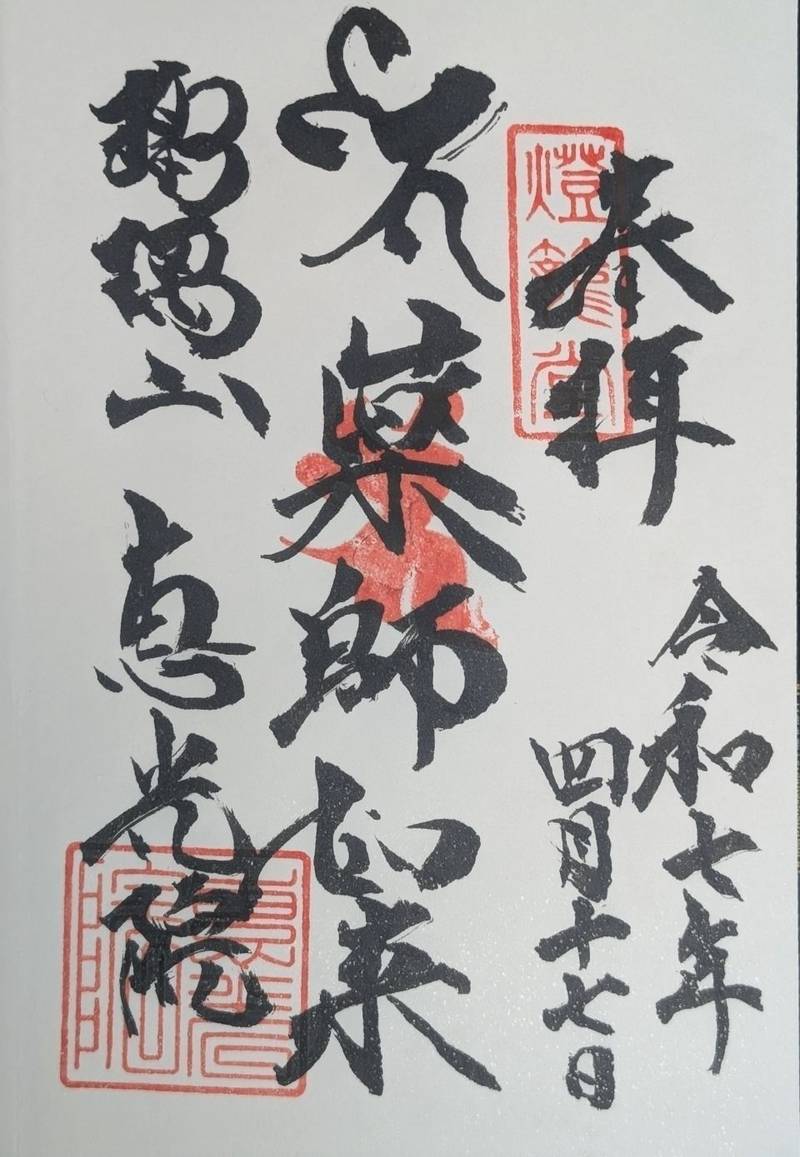 奉拝
燈籠堂
令和七年
四月十七日
薬師如来
山 恵光院